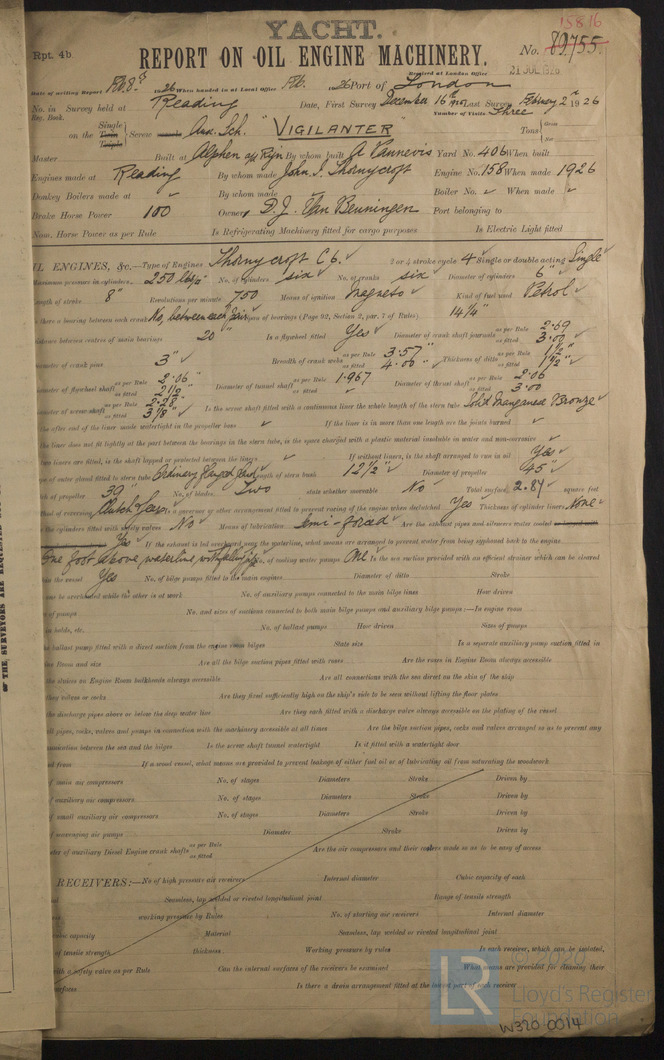 YACHT.
15816
Rpt. 4b.
REPORT ON OIL ENGINE MACHINERY.
No. 89755.
Received at London Office 21 JUL 1926
Date of writing Report Feb. 8th 1926 When handed in at Local Office Feb. 1926 Port of London
No. in Survey held at Reading Date, First Survey December 16th Last Survey February 2nd 1926
Reg. Book. Number of Visits Three
on the Single Twin Triple Screw Aux. Sch. "VIGILANTER" Tons Gross Net
Master Built at Alphen a/d Rijn By whom built A Vannevis Yard No. 406 When built
Engines made at Reading By whom made John I. Thornycroft Engine No. 158 When made 1926
Donkey Boilers made at ✓ By whom made ✓ Boiler No. ✓ When made ✓
Brake Horse Power 100 Owners D. J. Van Beuningen Port belonging to
Nom. Horse Power as per Rule Is Refrigerating Machinery fitted for cargo purposes Is Electric Light fitted
IL ENGINES, &c.—Type of Engines Thornycroft C 6. ✓ 2 or 4 stroke cycle 4 ✓ Single or double acting Single
Maximum pressure in cylinders 250 lbs/□" ✓ No. of cylinders six ✓ No. of cranks six ✓ Diameter of cylinders 6" ✓
Length of stroke 8" Revolutions per minute 750 Means of ignition Magneto ✓ Kind of fuel used Petrol ✓
Is there a bearing between each crank No, between each pair Span of bearings (Page 92, Section 2, par. 7 of Rules) 14 1/4" ✓
Distance between centres of main bearings 20" Is a flywheel fitted Yes ✓ Diameter of crank shaft journals as per Rule 2.69 as fitted 3.00 ✓
Diameter of crank pins 3" ✓ Breadth of crank webs as per Rule 3.57" as fitted 4.00" ✓ Thickness of ditto as per Rule 1 1/2" as fitted 1 1/2" ✓
Diameter of flywheel shaft as per Rule 2.06" as fitted Diameter of tunnel shaft as per Rule 1.967 as fitted ✓ Diameter of thrust shaft as per Rule 2.06 as fitted 3.00
Diameter of screw shaft as per Rule 2.28" as fitted 3 1/8" ✓ Is the screw shaft fitted with a continuous liner the whole length of the stern tube Solid Manganese Bronze ✓
the after end of the liner made watertight in the propeller boss ✓ If the liner is in more than one length are the joints burned ✓
the liner does not fit tightly at the part between the bearings in the stern tube, is the space charged with a plastic material insoluble in water and non-corrosive ✓
two liners are fitted, is the shaft lapped or protected between the liners ✓ If without liners, is the shaft arranged to run in oil Yes ✓
of outer gland fitted to stern tube Ordinary Length of stern bush 12 1/2" ✓ Diameter of propeller 45" ✓
Pitch of propeller 39" No. of blades Two state whether moveable No ✓ Total surface 2.84 ✓ square feet
Method of reversing Clutch & Gear Is a governor or other arrangement fitted to prevent racing of the engine when declutched Yes Thickness of cylinder liners None ✓
Are the cylinders fitted with safety valves No ✓ Means of lubrication Semi-forced ✓ Are the exhaust pipes and silencers water cooled
Yes ✓ If the exhaust is led overboard near the waterline, what means are arranged to prevent water being syphoned back to the engine
One foot above waterline, with No. of cooling water pumps One Is the sea suction provided with an efficient strainer which can be cleared
in the vessel Yes No. of bilge pumps fitted to the main engines Diameter of ditto Stroke
one be overhauled while the other is at work No. of auxiliary pumps connected to the main bilge lines How driven
of pumps No. and sizes of suctions connected to both main bilge pumps and auxiliary bilge pumps:—In engine room
in holds, etc. No. of ballast pumps How driven Sizes of pumps
the ballast pump fitted with a direct suction from the engine room bilges State size Is a separate auxiliary pump suction fitted in
Room and size Are all the bilge suction pipes fitted with roses Are the roses in Engine Room always accessible
the sluices on Engine Room bulkheads always accessible Are all connections with the sea direct on the skin of the ship
they valves or cocks Are they fixed sufficiently high on the ship's side to be seen without lifting the floor plates
the discharge pipes above or below the deep water line Are they each fitted with a discharge valve always accessible on the plating of the vessel
all pipes, cocks, valves and pumps in connection with the machinery accessible at all times Are the bilge suction pipes, cocks and valves arranged so as to prevent any
communication between the sea and the bilges Is the screw shaft tunnel watertight Is it fitted with a watertight door
If a wood vessel, what means are provided to prevent leakage of either fuel oil or of lubricating oil from saturating the woodwork
of main air compressors No. of stages Diameters Stroke Driven by
of auxiliary air compressors No. of stages Diameters Stroke Driven by
of small auxiliary air compressors No. of stages Diameters Stroke Driven by
of scavenging air pumps Diameter Stroke Driven by
of auxiliary Diesel Engine crank shafts as per Rule as fitted Are the air compressors and their coolers made so as to be easy of access
RECEIVERS:—No of high pressure air receivers Internal diameter Cubic capacity of each
Seamless, lap welded or riveted longitudinal joint Range of tensile strength
working pressure by Rules No. of starting air receivers Internal diameter
capacity Material Seamless, lap welded or riveted longitudinal joint
of tensile strength thickness Working pressure by rules Is each receiver, which can be isolated,
with a safety valve as per Rule Can the internal surfaces of the receivers be examined What means are provided for cleaning their
surfaces Is there a drain arrangement fitted at the lowest part of each receiver
OF THE, SURVEYORS ARE REQUESTED
LR
© 2020
Lloyd's Register
Foundation
W320-0014